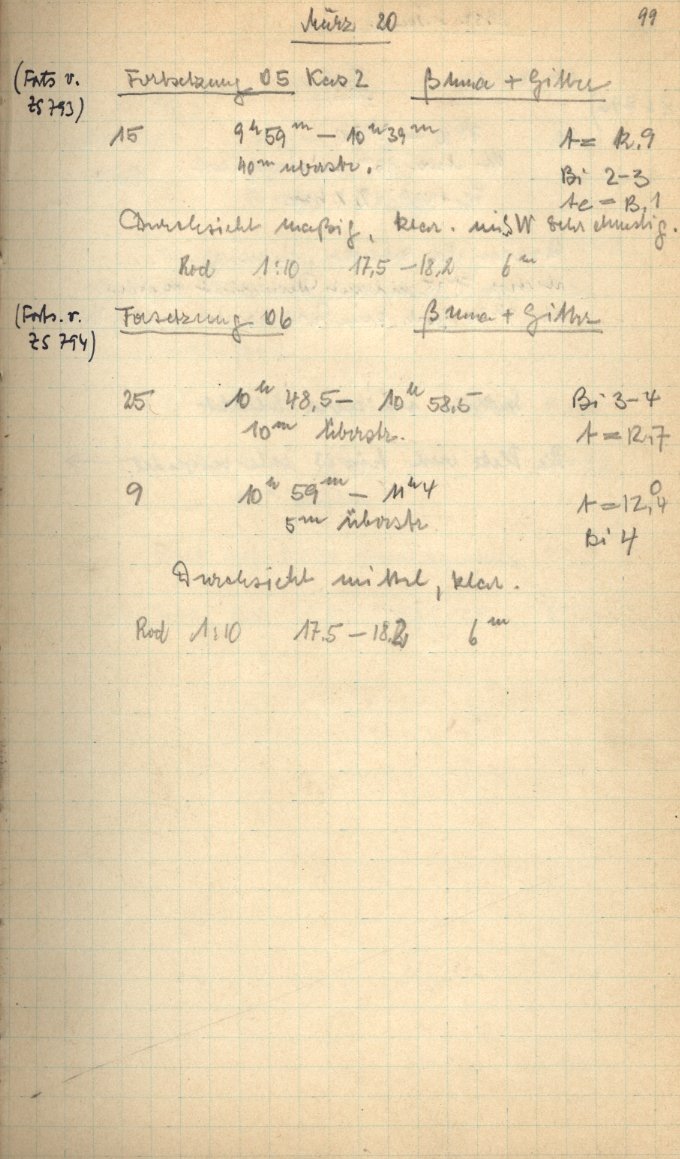 März 20 99
(Forts v. ZS 793) Fortsetzung 05 Kas 2 β Uma + Gitter
15 9ʰ59ᵐ – 10ʰ39ᵐ t = 12,9
40ᵐ überstr. Bi 2–3
Durchsicht mäßig, klar. sehr dunstig.
Rod 1:10 17,5 – 18,2 6ᵐ
(Forts. v. ZS 794) Forsetzung 06 β Uma + Gitter
25 10ʰ 48,5 – 10ʰ 58,5 Bi 3–4
10ᵐ überstr. t = 12,7
9 10ʰ 59ᵐ – 11ʰ4
5ᵐ überstr Bi 4
Durchsicht mittel, klar.
Rod 1:10 17,5 – 18,2 6ᵐ